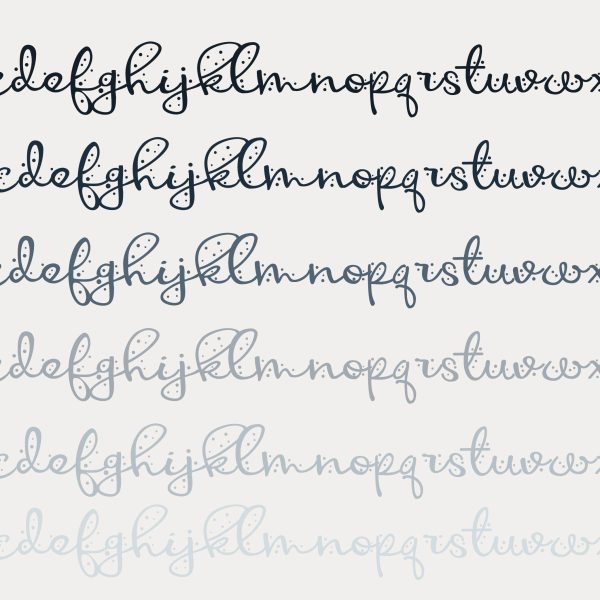 cdefghijklmnopqrstuvwx
cdefghijklmnopqrstuvwx
cdefghijklmnopqrstuvwx
cdefghijklmnopqrstuvwx
cdefghijklmnopqrstuvwx
cdefghijklmnopqrstuvwx